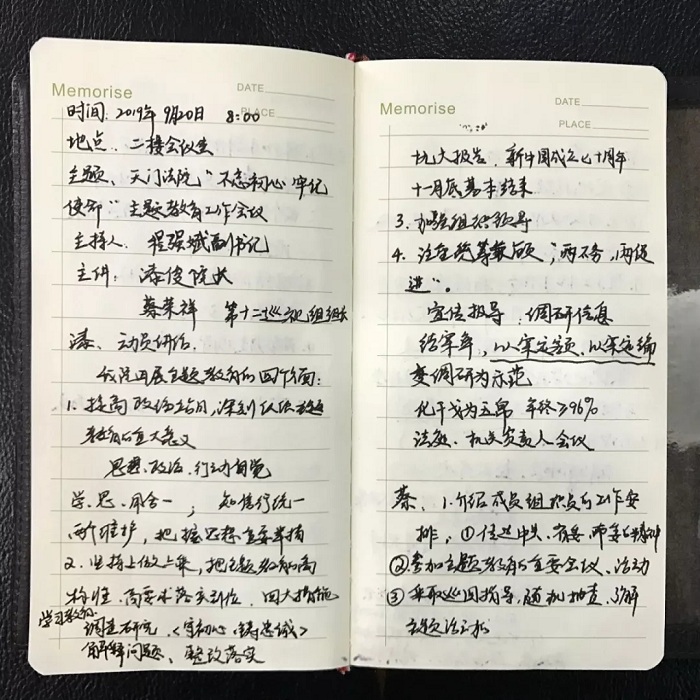 Memorise
DATE
PLACE
时间：2019年 9月20日 8:00
地点：二楼会议室
主题：天门法院“不忘初心 牢记
使命”主题教育工作会议
主持人：程强斌副书记
主件：漆俊院长
蔡荣祥 第十二巡视组组长
漆：动员讲话
开展主题教育的四个方面：
1. 提高政治站位，深刻认识主题
教育的重大意义
思想、政治、行动自觉
学、思、用合一；知信行统一
两个维护，把握总要求
2. 坚持上做上乘，把主题教育的高
标准、高要求落实到位，四大措施
学习教育
调查研究《守初心 铸忠诚》
解释问题、整改落实
Memorise
DATE
PLACE
十九大报告，新中国成立七十周年
十一月底基本结束
3. 加强组织领导
4. 注重统筹兼顾“两不误，两促
进”。
宣传指导：调研信息
结案率，以案定额，以案定编
变调研为示范
化干戈为玉帛 年终≥96%
法庭、机关负责人会议
蔡：1. 介绍成员组成员的工作安
排，①传达中央、省委、市委的精神
②参加主题教育的重要会议、活动
③采取巡回指导、随机抽查、了解